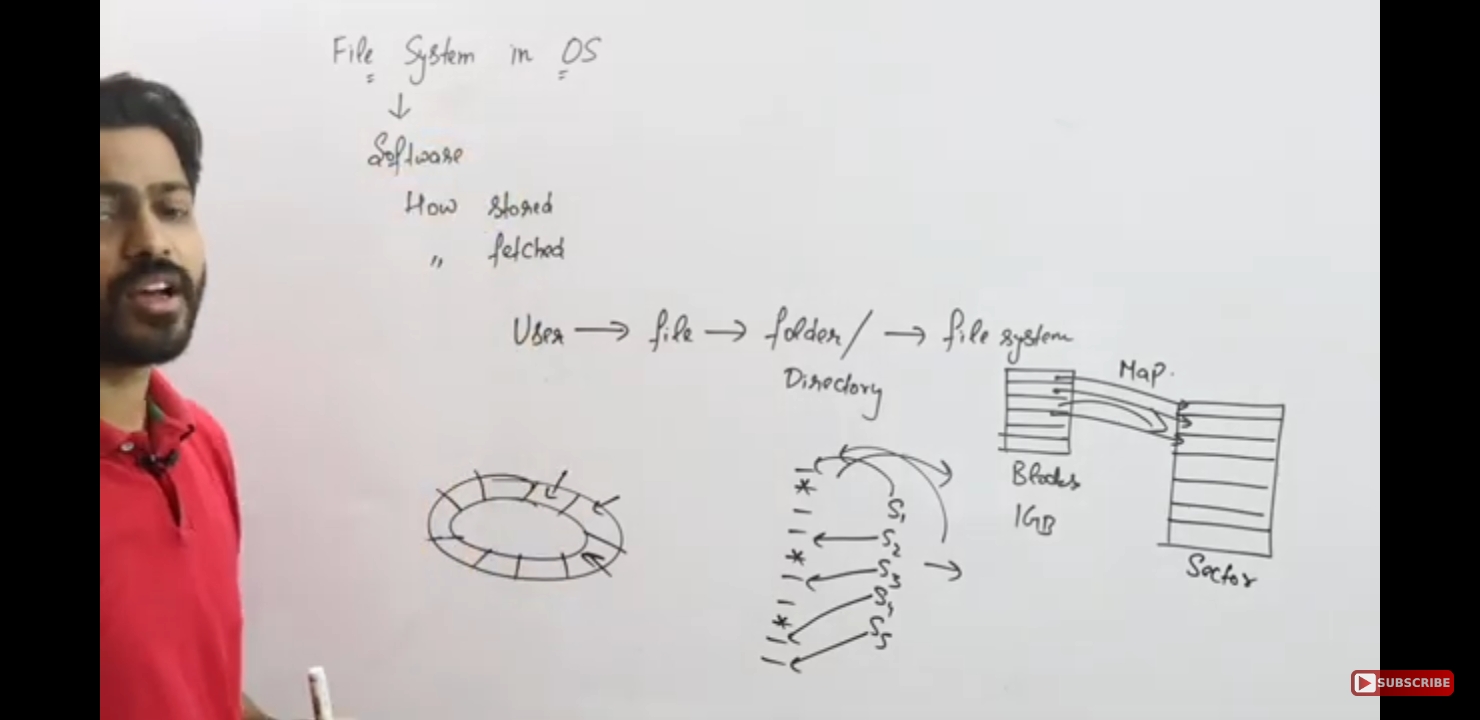 File System in OS
↓
Software
How stored
" fetched
User → file → folder/ → file system
Directory
Map.
Blocks
1GB
Sector
*
S1
S2
*
S3
S4
*
S5
SUBSCRIBE